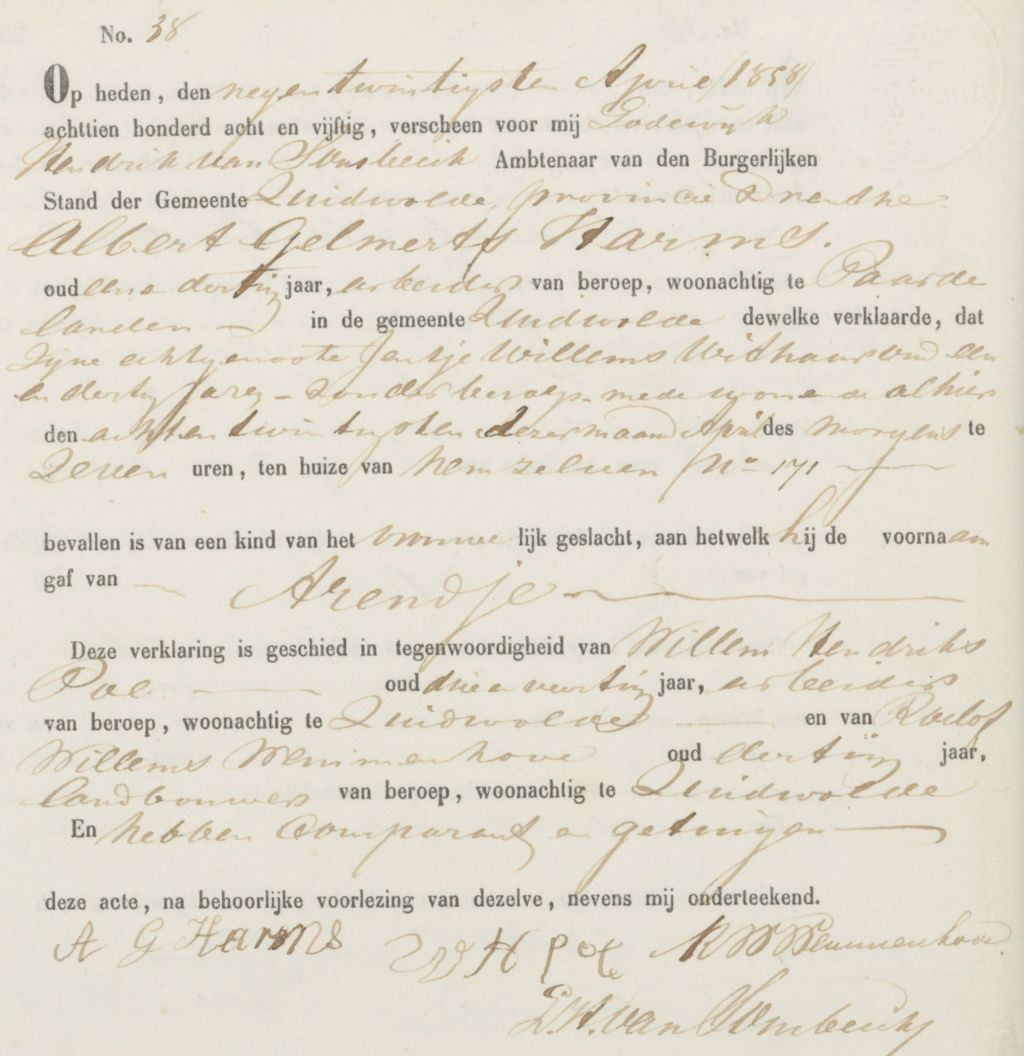 No. 38
Op heden, den negen twintigsten April (1858)
achttien honderd acht en vijftig, verscheen voor mij Lodewijk
Hendrik van Ambtenaar van den Burgerlijken
Stand der Gemeente Zuidwolde, provincie Drenthe
Albert Gelmerts Harms.
oud een en dertig jaar, arbeider van beroep, woonachtig te Paarde
landen — in de gemeente Zuidwolde dewelke verklaarde, dat
Zijne echtgenoote Jantje Willems oud een
en dertig jaren - zonder beroep mede wonende alhier
den acht en twintigsten dezer maand April des morgens te
Zeven uren, ten huize van hem zelven No 171 —
bevallen is van een kind van het vrouwelijk geslacht, aan hetwelk hij de voornaam
gaf van — Arendje —
Deze verklaring is geschied in tegenwoordigheid van Willem Hendriks
Poe — oud drie en veertig jaar, arbeider
van beroep, woonachtig te Zuidwolde — en van Roelof
Willems Wemmenhove oud dertig jaar,
landbouwer van beroep, woonachtig te Zuidwolde
En hebben Comparant en getuigen —
deze acte, na behoorlijke voorlezing van dezelve, nevens mij onderteekend.
A G Harms W H Poe R W Wemmenhove
L.H. van